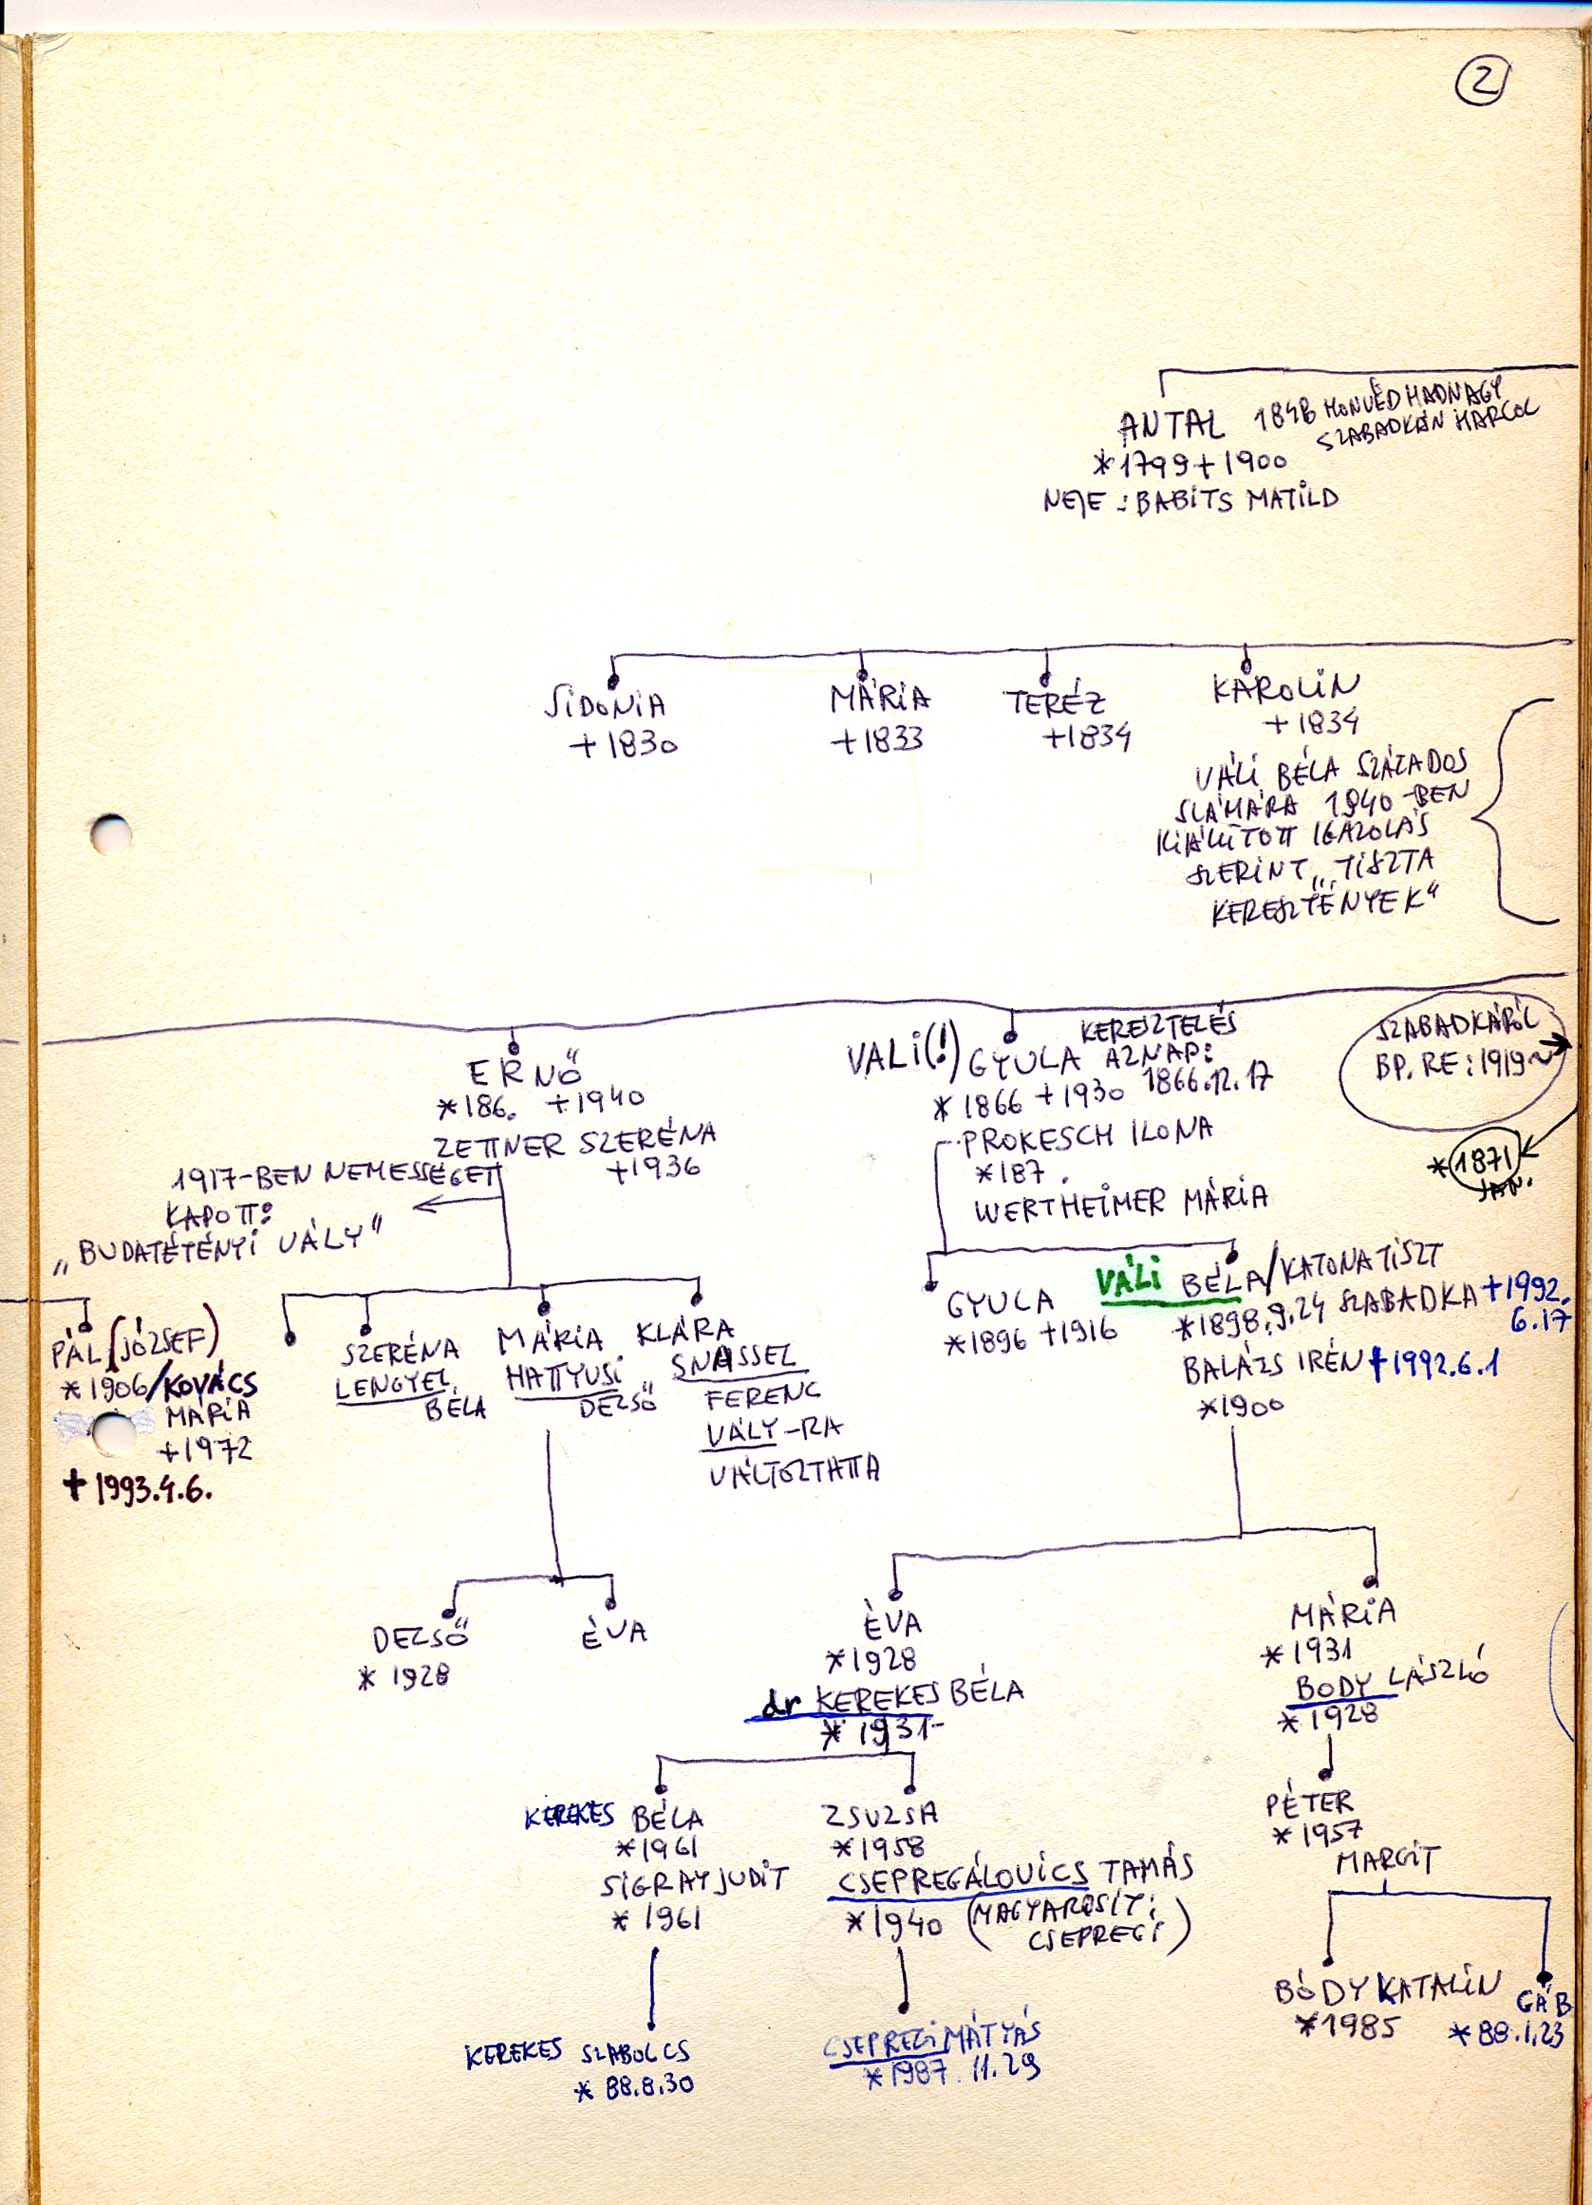 2
ANTAL 1848 HONVÉDHADNAGY
SZABADKÁN HARCOL
*1799 +1900
NEJE : BABITS MATILD
SIDONIA
+1830
MÁRIA
+1833
TERÉZ
+1834
KAROLIN
+1834
VÁLI BÉLA SZÁZADOS
SZÁMÁRA 1940-BEN
KIÁLLÍTOTT IGAZOLÁS
SZERINT „TISZTA
KERESZTÉNYEK"
ERNŐ
*186. +1940
ZETTNER SZERÉNA
+1936
1917-BEN NEMESSÉGET
KAPOTT:
„BUDATÉTÉNYI VÁLY"
VALI(!) GYULA
KERESZTELÉS
AZNAP:
1866.12.17
*1866 +1930
PROKESCH ILONA
*187 .
WERTHEIMER MÁRIA
SZABADKÁRÓL
BP. RE: 1919~
*1871
JAN.
PÁL (JÓZSEF)
*1906/KOVÁCS
MÁRIA
+1972
+1993.4.6.
SZERÉNA
LENGYEL
BÉLA
MÁRIA
HATTYUSI
DEZSŐ
KLÁRA
SNASSEL
FERENC
VÁLY-RA
VÁLTOZTATTA
GYULA
*1896 +1916
VÁLI BÉLA/KATONATISZT
*1898.9.24 SZABADKA +1992.
6.17
BALÁZS IRÉN +1992.6.1
*1900
DEZSŐ
*1928
ÉVA
ÉVA
*1928
dr KEREKES BÉLA
*1931-
MÁRIA
*1931
BODY LÁSZLÓ
*1928
KEREKES BÉLA
*1961
SIGRAY JUDIT
*1961
ZSUZSA
*1958
CSEPREGÁLOVICS TAMÁS
*1940 (MAGYAROSÍT:
CSEPREGI)
PÉTER
*1957
MARGIT
BÓDY KATALIN
*1985
GÁB
*88.1.23
KEREKES SZABOLCS
*88.8.30
CSEPREGI MÁTYÁS
*1987.11.29